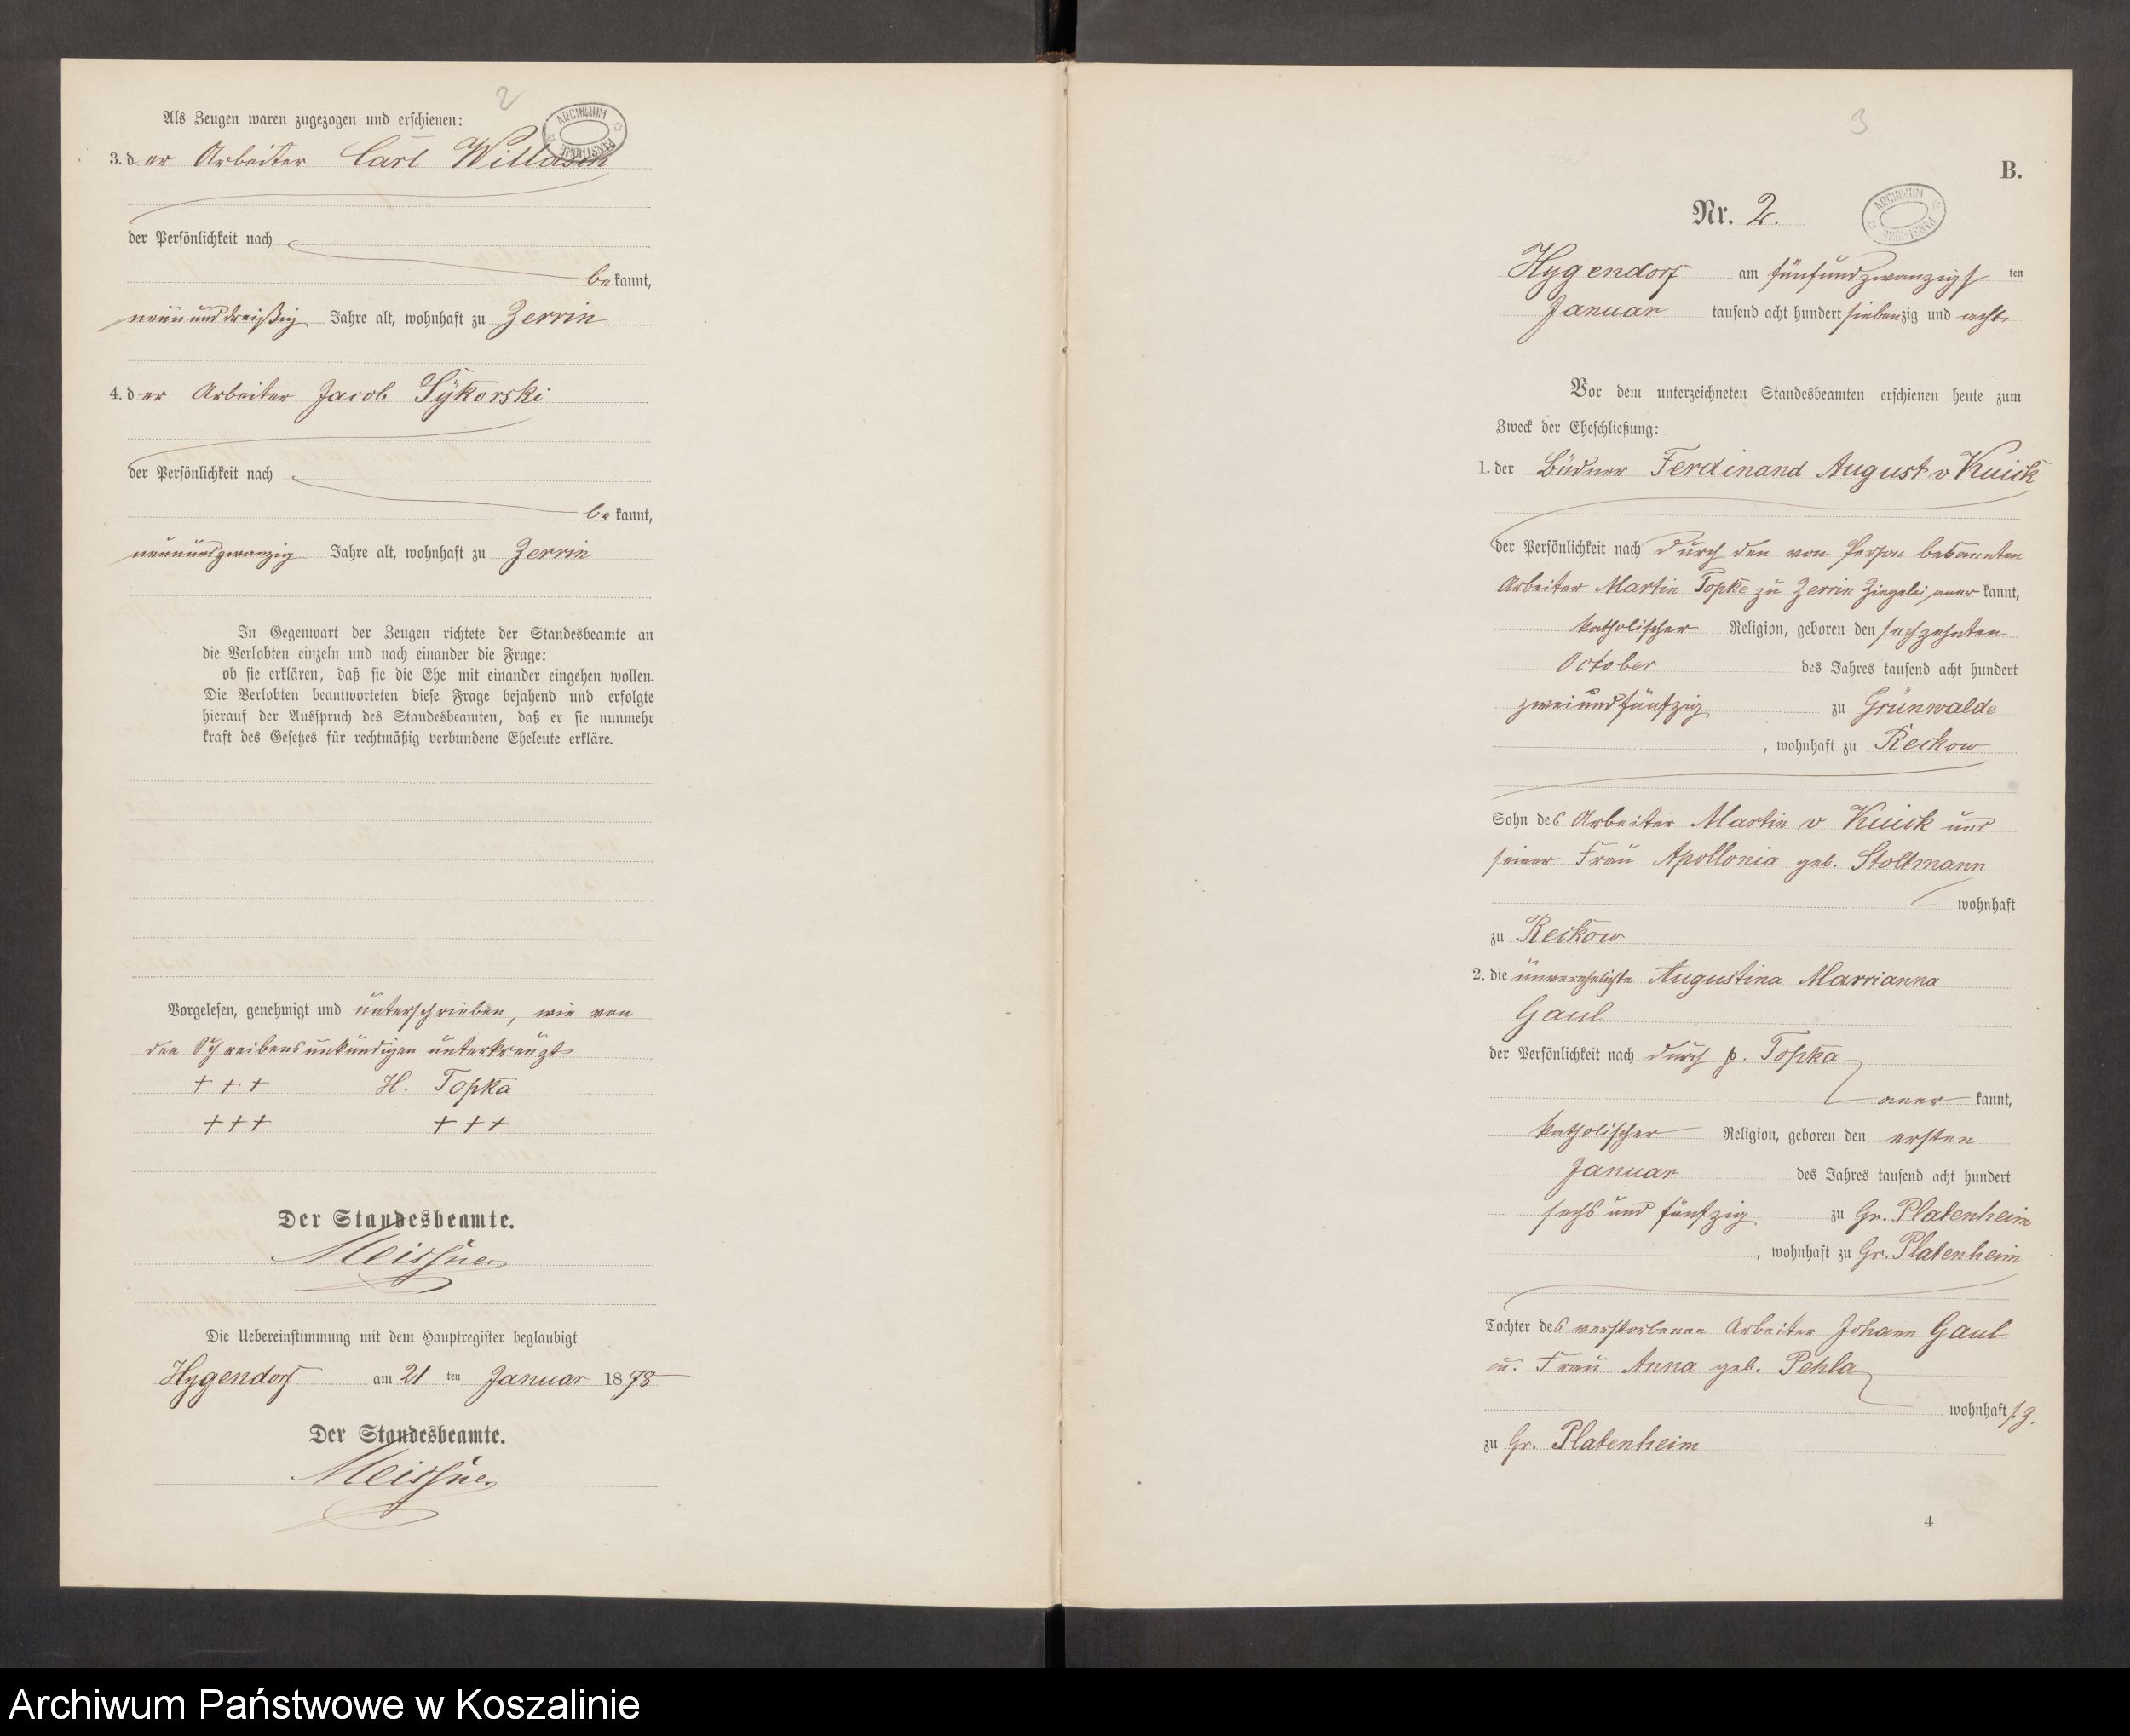 2
ARCHIWUM PAŃSTWOWE
Als Zeugen waren zugezogen und erschienen:
3. der Arbeiter Carl Willasch
der Persönlichkeit nach
bekannt,
neununddreißig Jahre alt, wohnhaft zu Zerrin
4. der Arbeiter Jacob Sykorski
der Persönlichkeit nach
bekannt,
neunundzwanzig Jahre alt, wohnhaft zu Zerrin
In Gegenwart der Zeugen richtete der Standesbeamte an
die Verlobten einzeln und nach einander die Frage:
ob sie erklären, daß sie die Ehe mit einander eingehen wollen.
Die Verlobten beantworteten diese Frage bejahend und erfolgte
hierauf der Ausspruch des Standesbeamten, daß er sie nunmehr
kraft des Gesetzes für rechtmäßig verbundene Eheleute erkläre.
Vorgelesen, genehmigt und unterschrieben, wie von
den Schreibensunkundigen unterkreuzt
+++ H. Topka
+++ +++
Der Standesbeamte.
Meissner
Die Uebereinstimmung mit dem Hauptregister beglaubigt
Hygendorf am 21 ten Januar 1878
Der Standesbeamte.
Meissner
3
B.
Nr. 2.
ARCHIWUM PAŃSTWOWE
Hygendorf am fünfundzwanzigsten
Januar tausend acht hundert siebenzig und acht
Vor dem unterzeichneten Standesbeamten erschienen heute zum
Zweck der Eheschließung:
1. der Büdner Ferdinand August v Kuick
der Persönlichkeit nach durch den von Person bekannten
Arbeiter Martin Topke zu Zerrin Ziegelei anerkannt,
katholischer Religion, geboren den sechzehnten
October des Jahres tausend acht hundert
zweiundfünfzig zu Grünwalde
, wohnhaft zu Reckow
Sohn des Arbeiter Martin v Kuick und
seiner Frau Apollonia geb. Stoltmann
wohnhaft
zu Reckow
2. die unverehelichte Augustina Marrianna
Gaul
der Persönlichkeit nach durch p. Topka
anerkannt,
katholischer Religion, geboren den ersten
Januar des Jahres tausend acht hundert
sechs und fünfzig zu Gr. Platenheim
, wohnhaft zu Gr. Platenheim
Tochter des verstorbenen Arbeiter Johann Gaul
u. Frau Anna geb. Pehla
wohnhaft s. Z.
zu Gr. Platenheim
4
Archiwum Państwowe w Koszalinie